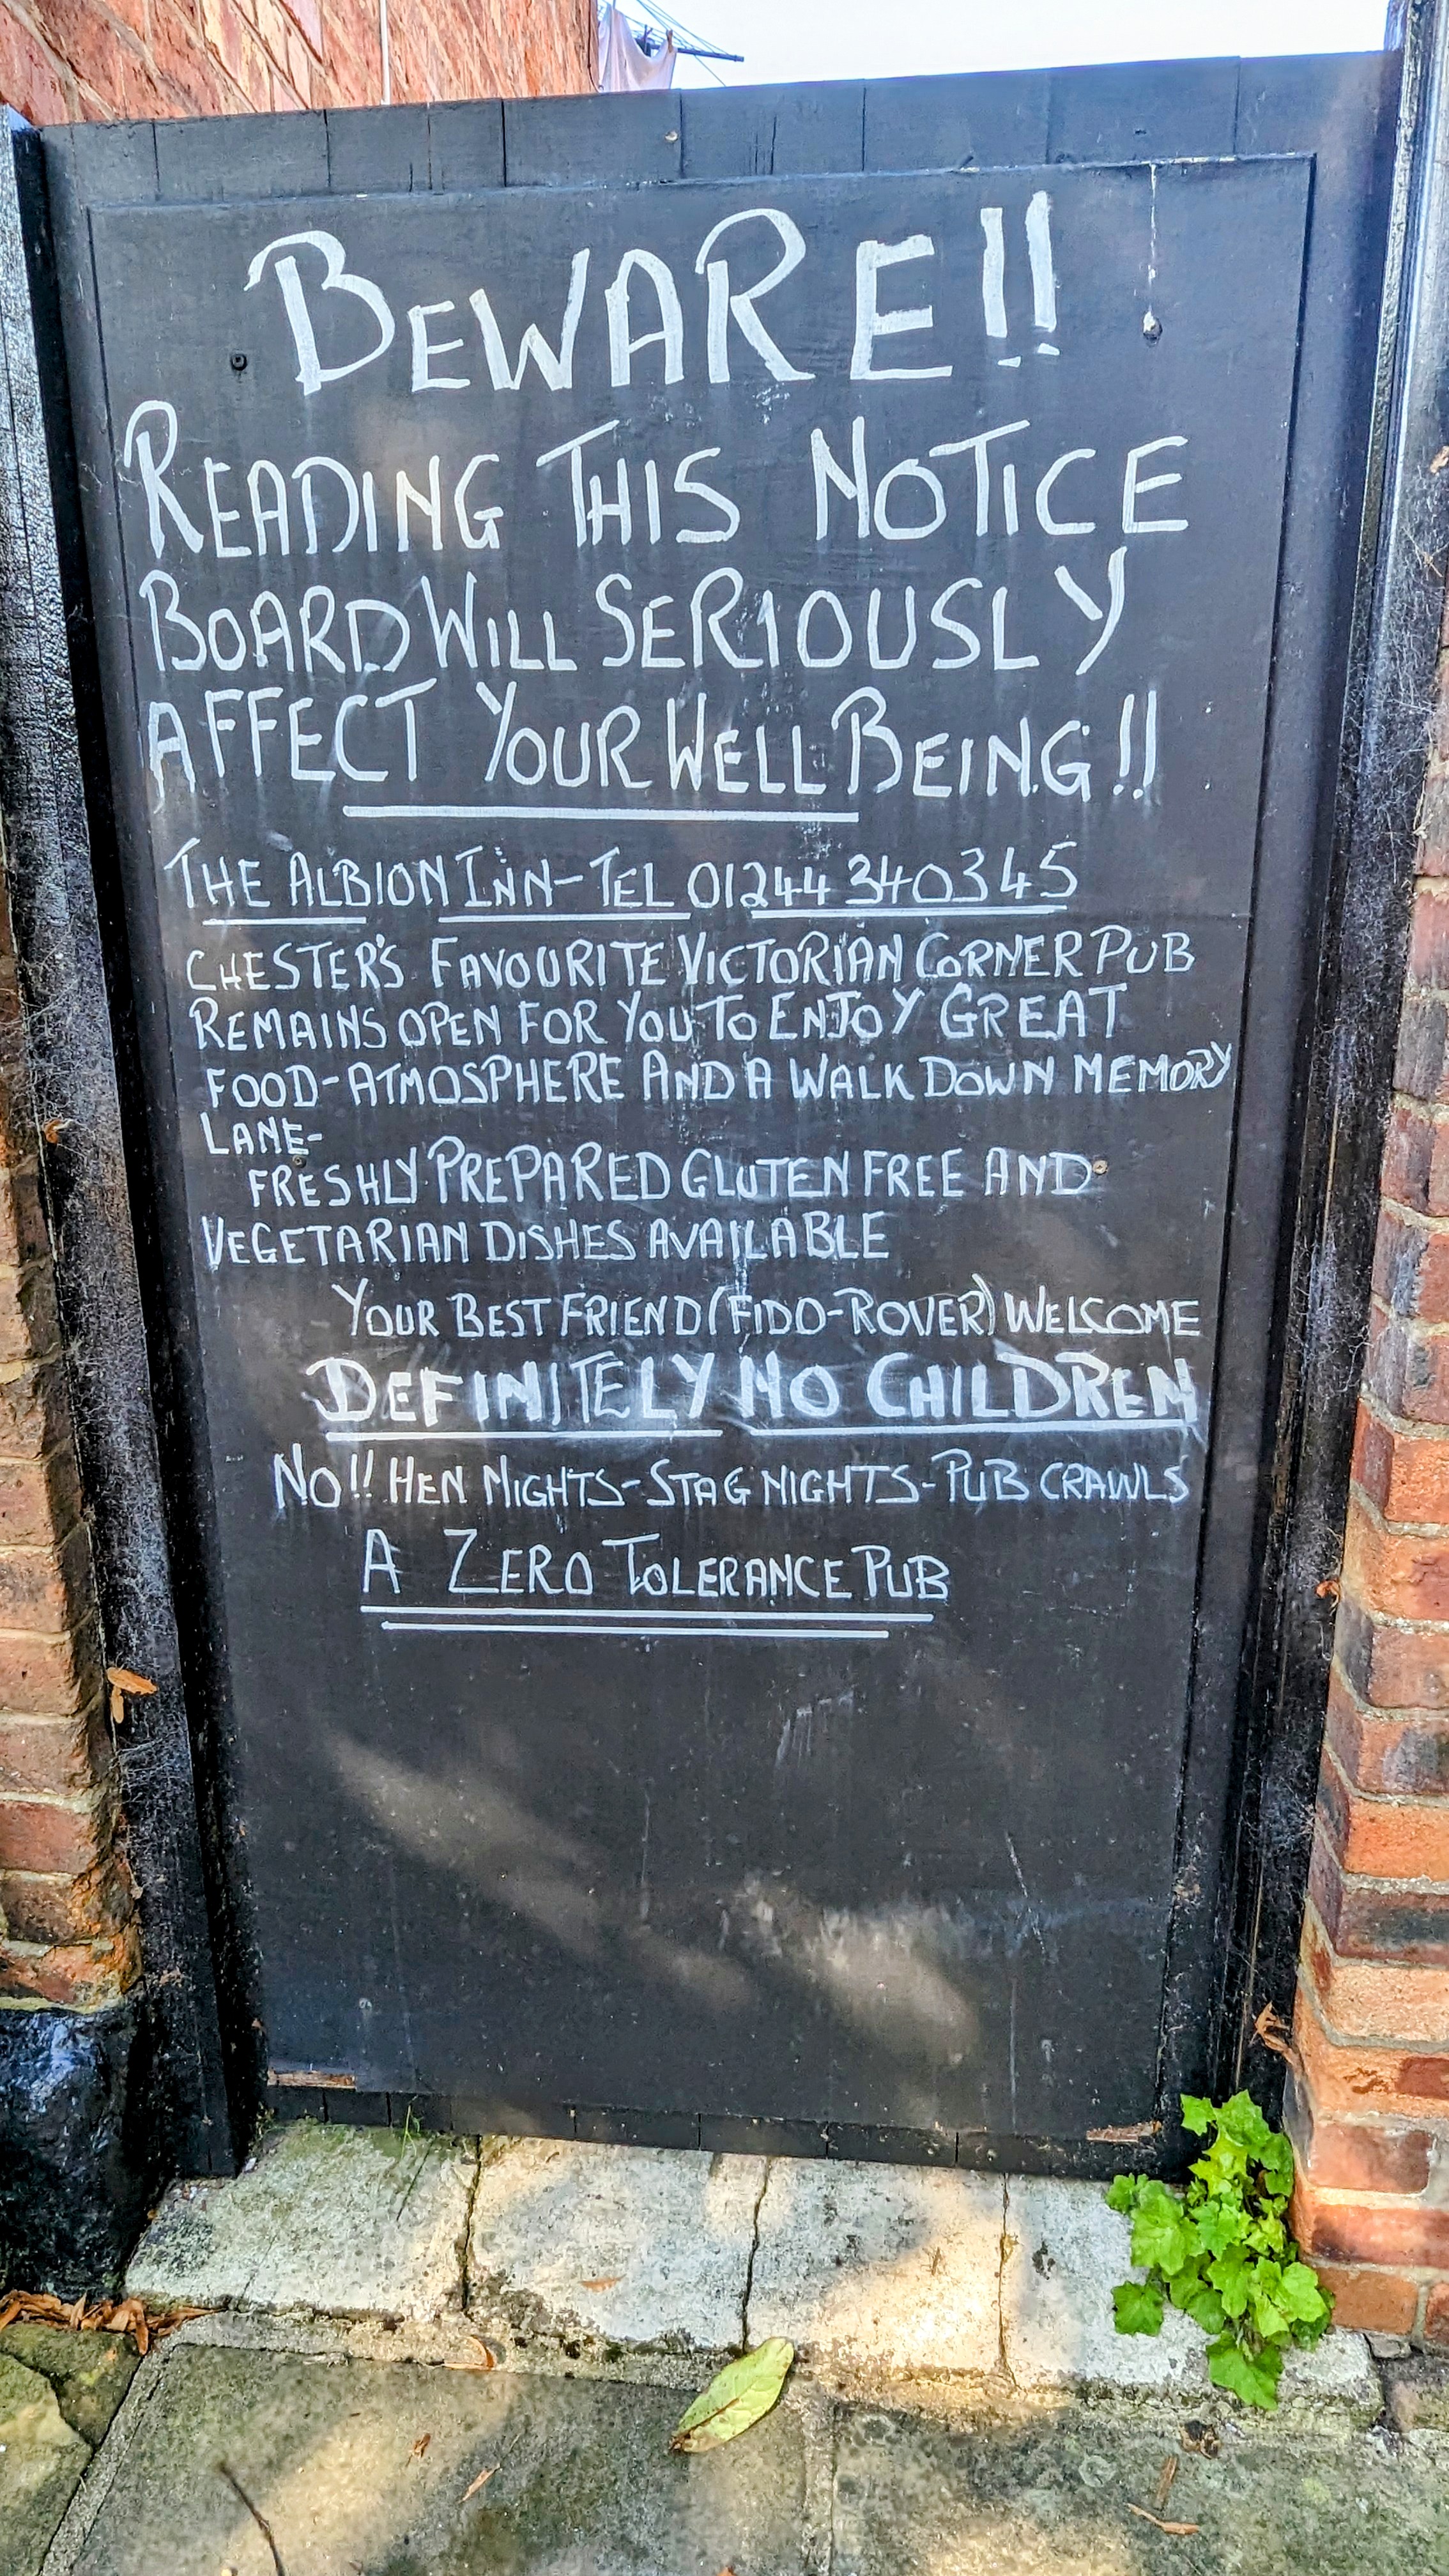 BEWARE!!
READING THIS NOTICE
BOARD WILL SERIOUSLY
AFFECT YOUR WELL BEING!!
THE ALBION INN - TEL 01244 340345
CHESTER'S FAVOURITE VICTORIAN CORNER PUB
REMAINS OPEN FOR YOU TO ENJOY GREAT
FOOD - ATMOSPHERE AND A WALK DOWN MEMORY
LANE -
FRESHLY PREPARED GLUTEN FREE AND
VEGETARIAN DISHES AVAILABLE
YOUR BEST FRIEND (FIDO-ROVER) WELCOME
DEFINITELY NO CHILDREN
NO!! HEN NIGHTS - STAG NIGHTS - PUB CRAWLS
A ZERO TOLERANCE PUB